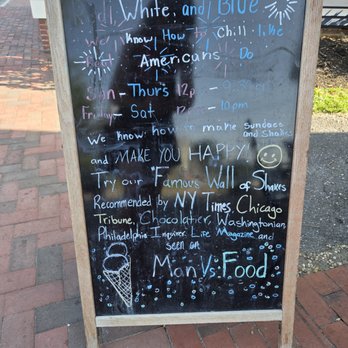 Red, White, and Blue
We Know How to Chill like
Red Americans Do
Sun - Thurs 12p -
Friday - Sat 12p - 10pm
We know how to make sundaes
and shakes
and MAKE YOU HAPPY!
Try our "Famous Wall of Shakes
Recommended by NY Times, Chicago
Tribune, Chocolatier, Washingtonian,
Philadelphia Inquirer, Life Magazine and
seen on
Man Vs. Food